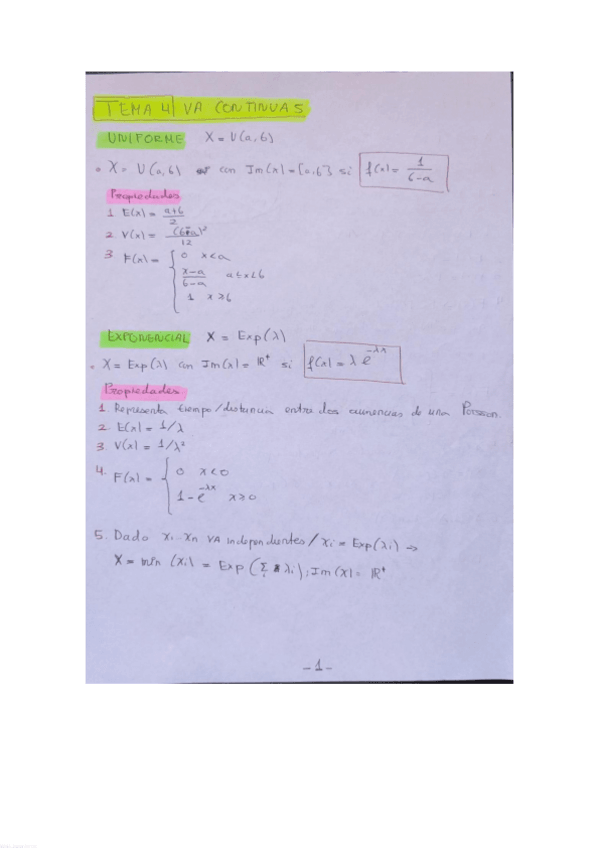 TEMA 4 | VA CONTINUAS
UNIFORME X = U(a,b)
• X = U(a,b) con Im(x) = [a,b] si f(x) = 1/(b-a)
Propiedades
1 E(x) = (a+b)/2
2 V(x) = (b-a)²/12
3 F(x) = { 0 x<a
(x-a)/(b-a) a≤x<b
1 x≥b
EXPONENCIAL X = Exp(λ)
• X = Exp(λ) con Im(x) = ℝ⁺ si f(x) = λ e^(-λx)
Propiedades
1. Representa tiempo/distancia entre dos de una Poisson.
2. E(x) = 1/λ
3. V(x) = 1/λ²
4. F(x) = { 0 x<0
1 - e^(-λx) x≥0
5. Dado xi...xn VA independientes / xi = Exp(λi) ⇒
X = min (xi) = Exp(Σ λi); Im(X) = ℝ⁺
- 1 -